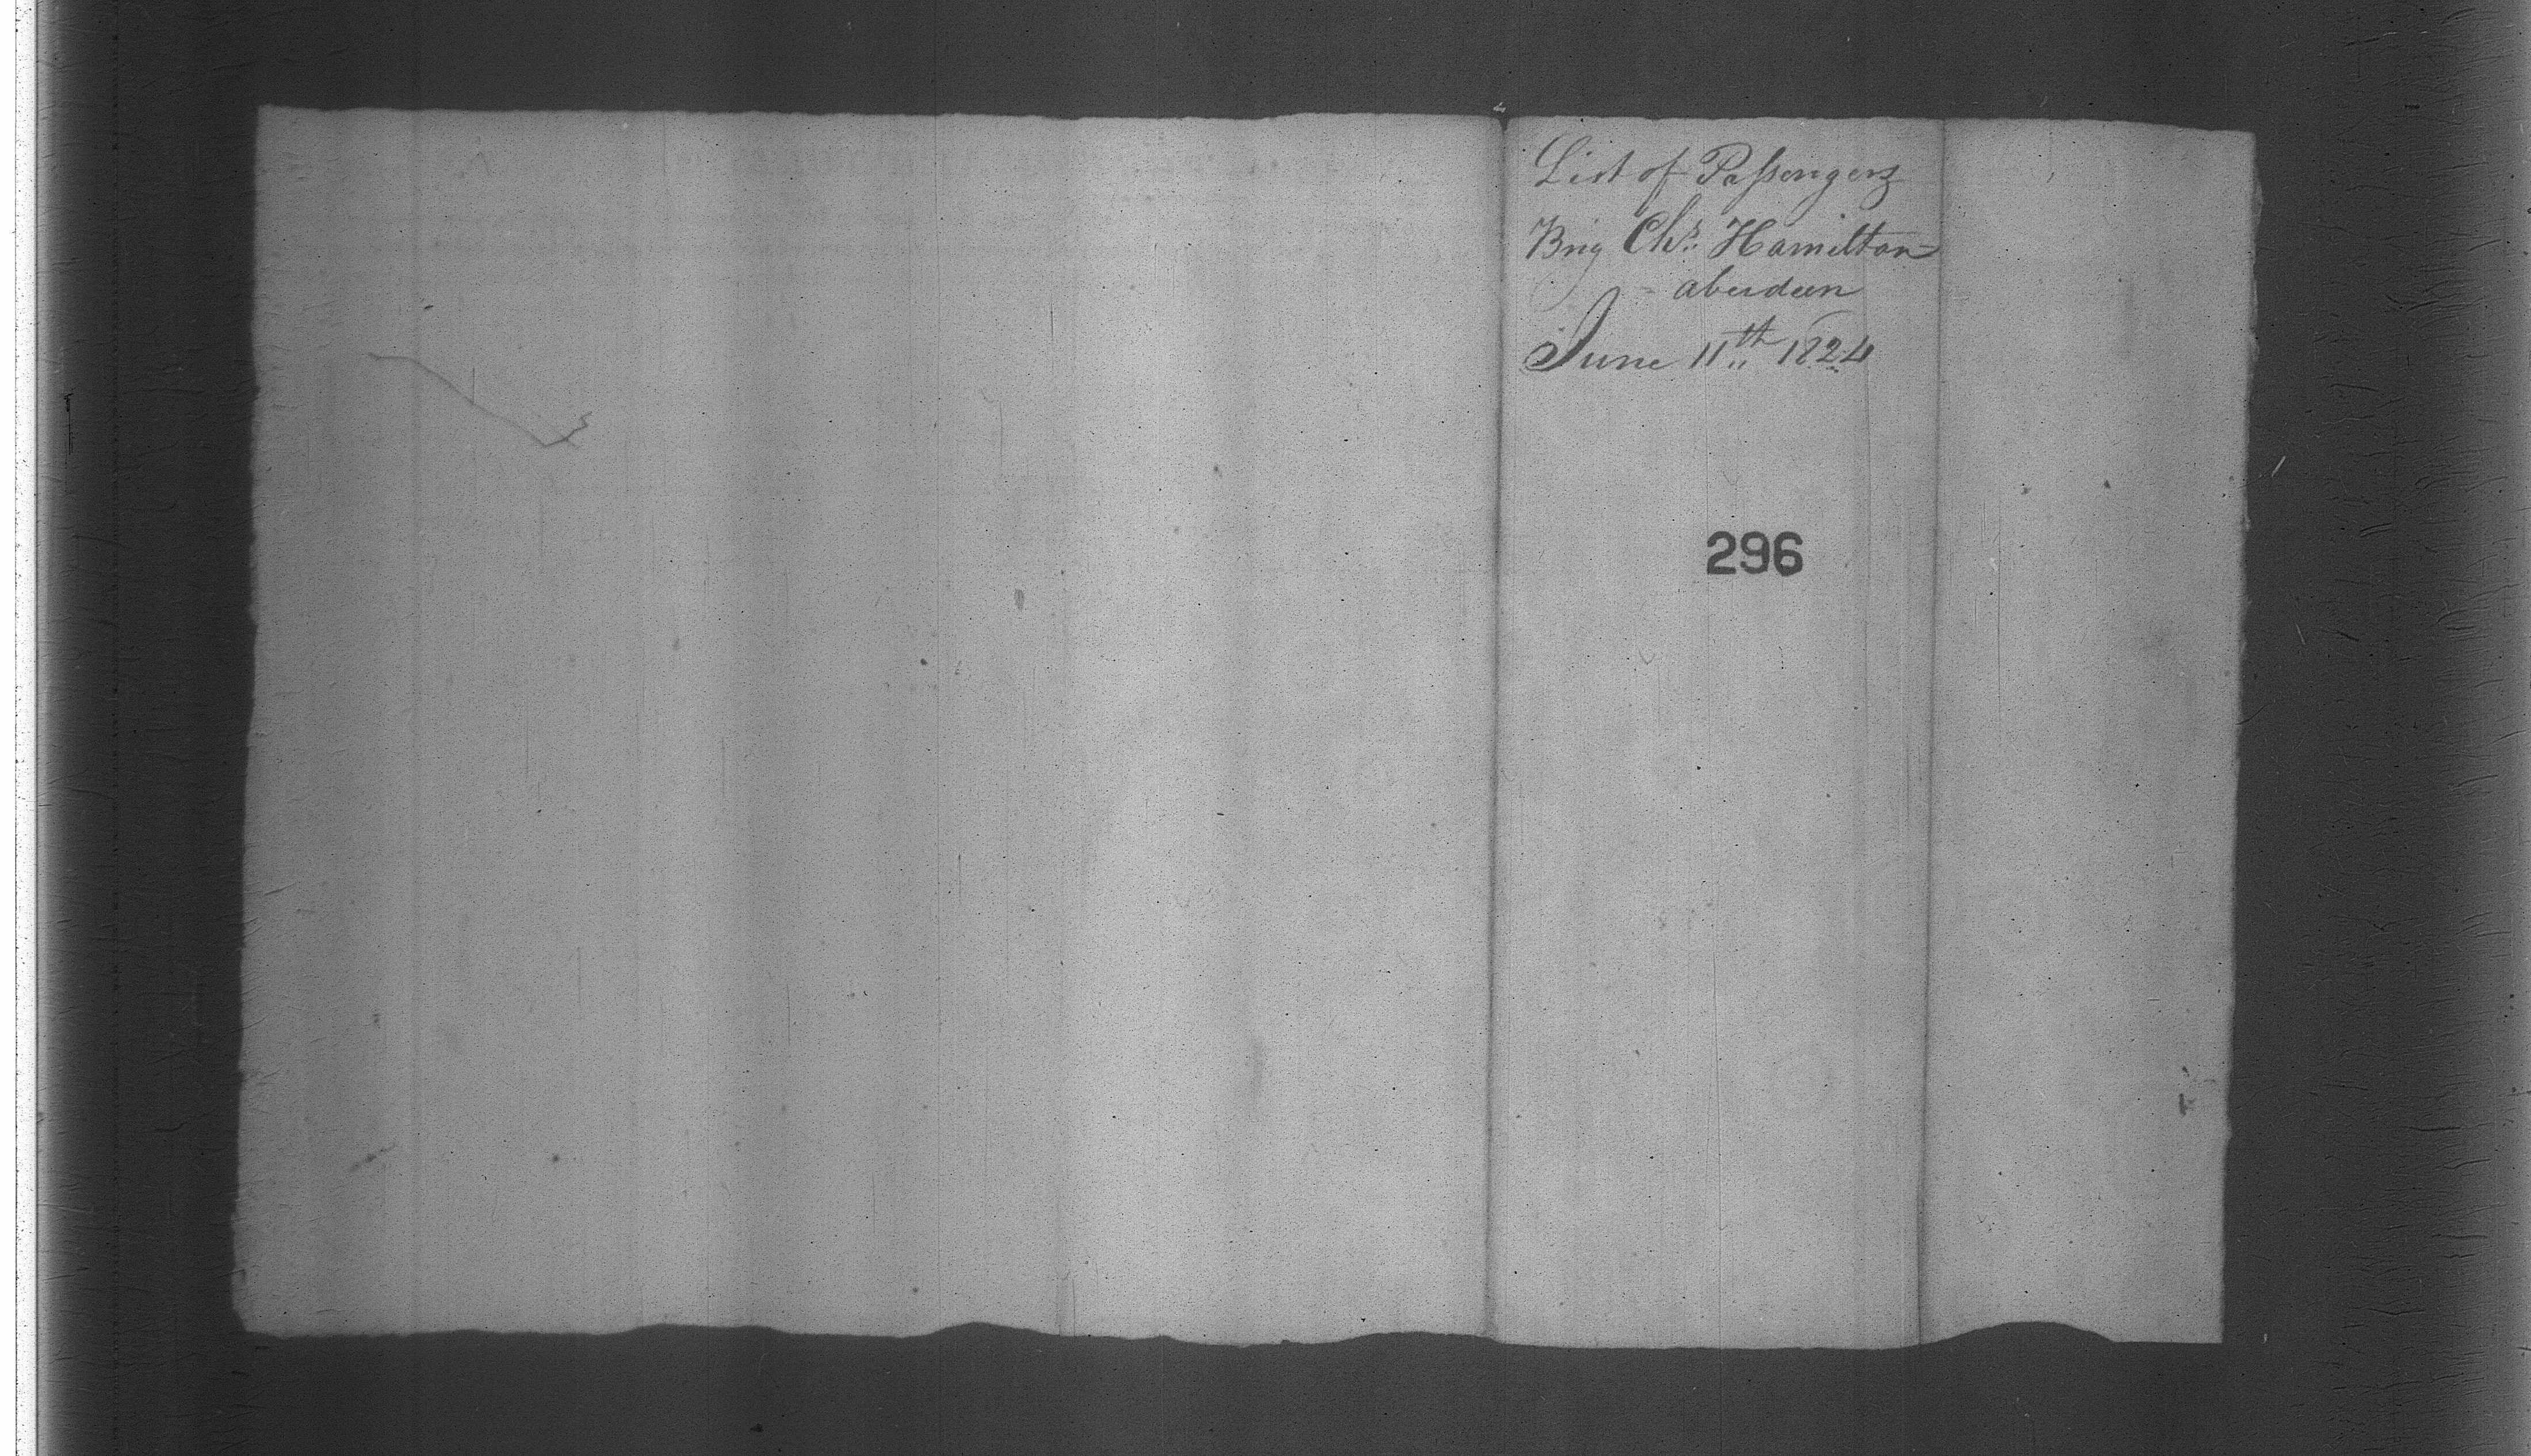 List of Passengers
Brig Chs. Hamilton
- aberdeen
June 11th 1824
296